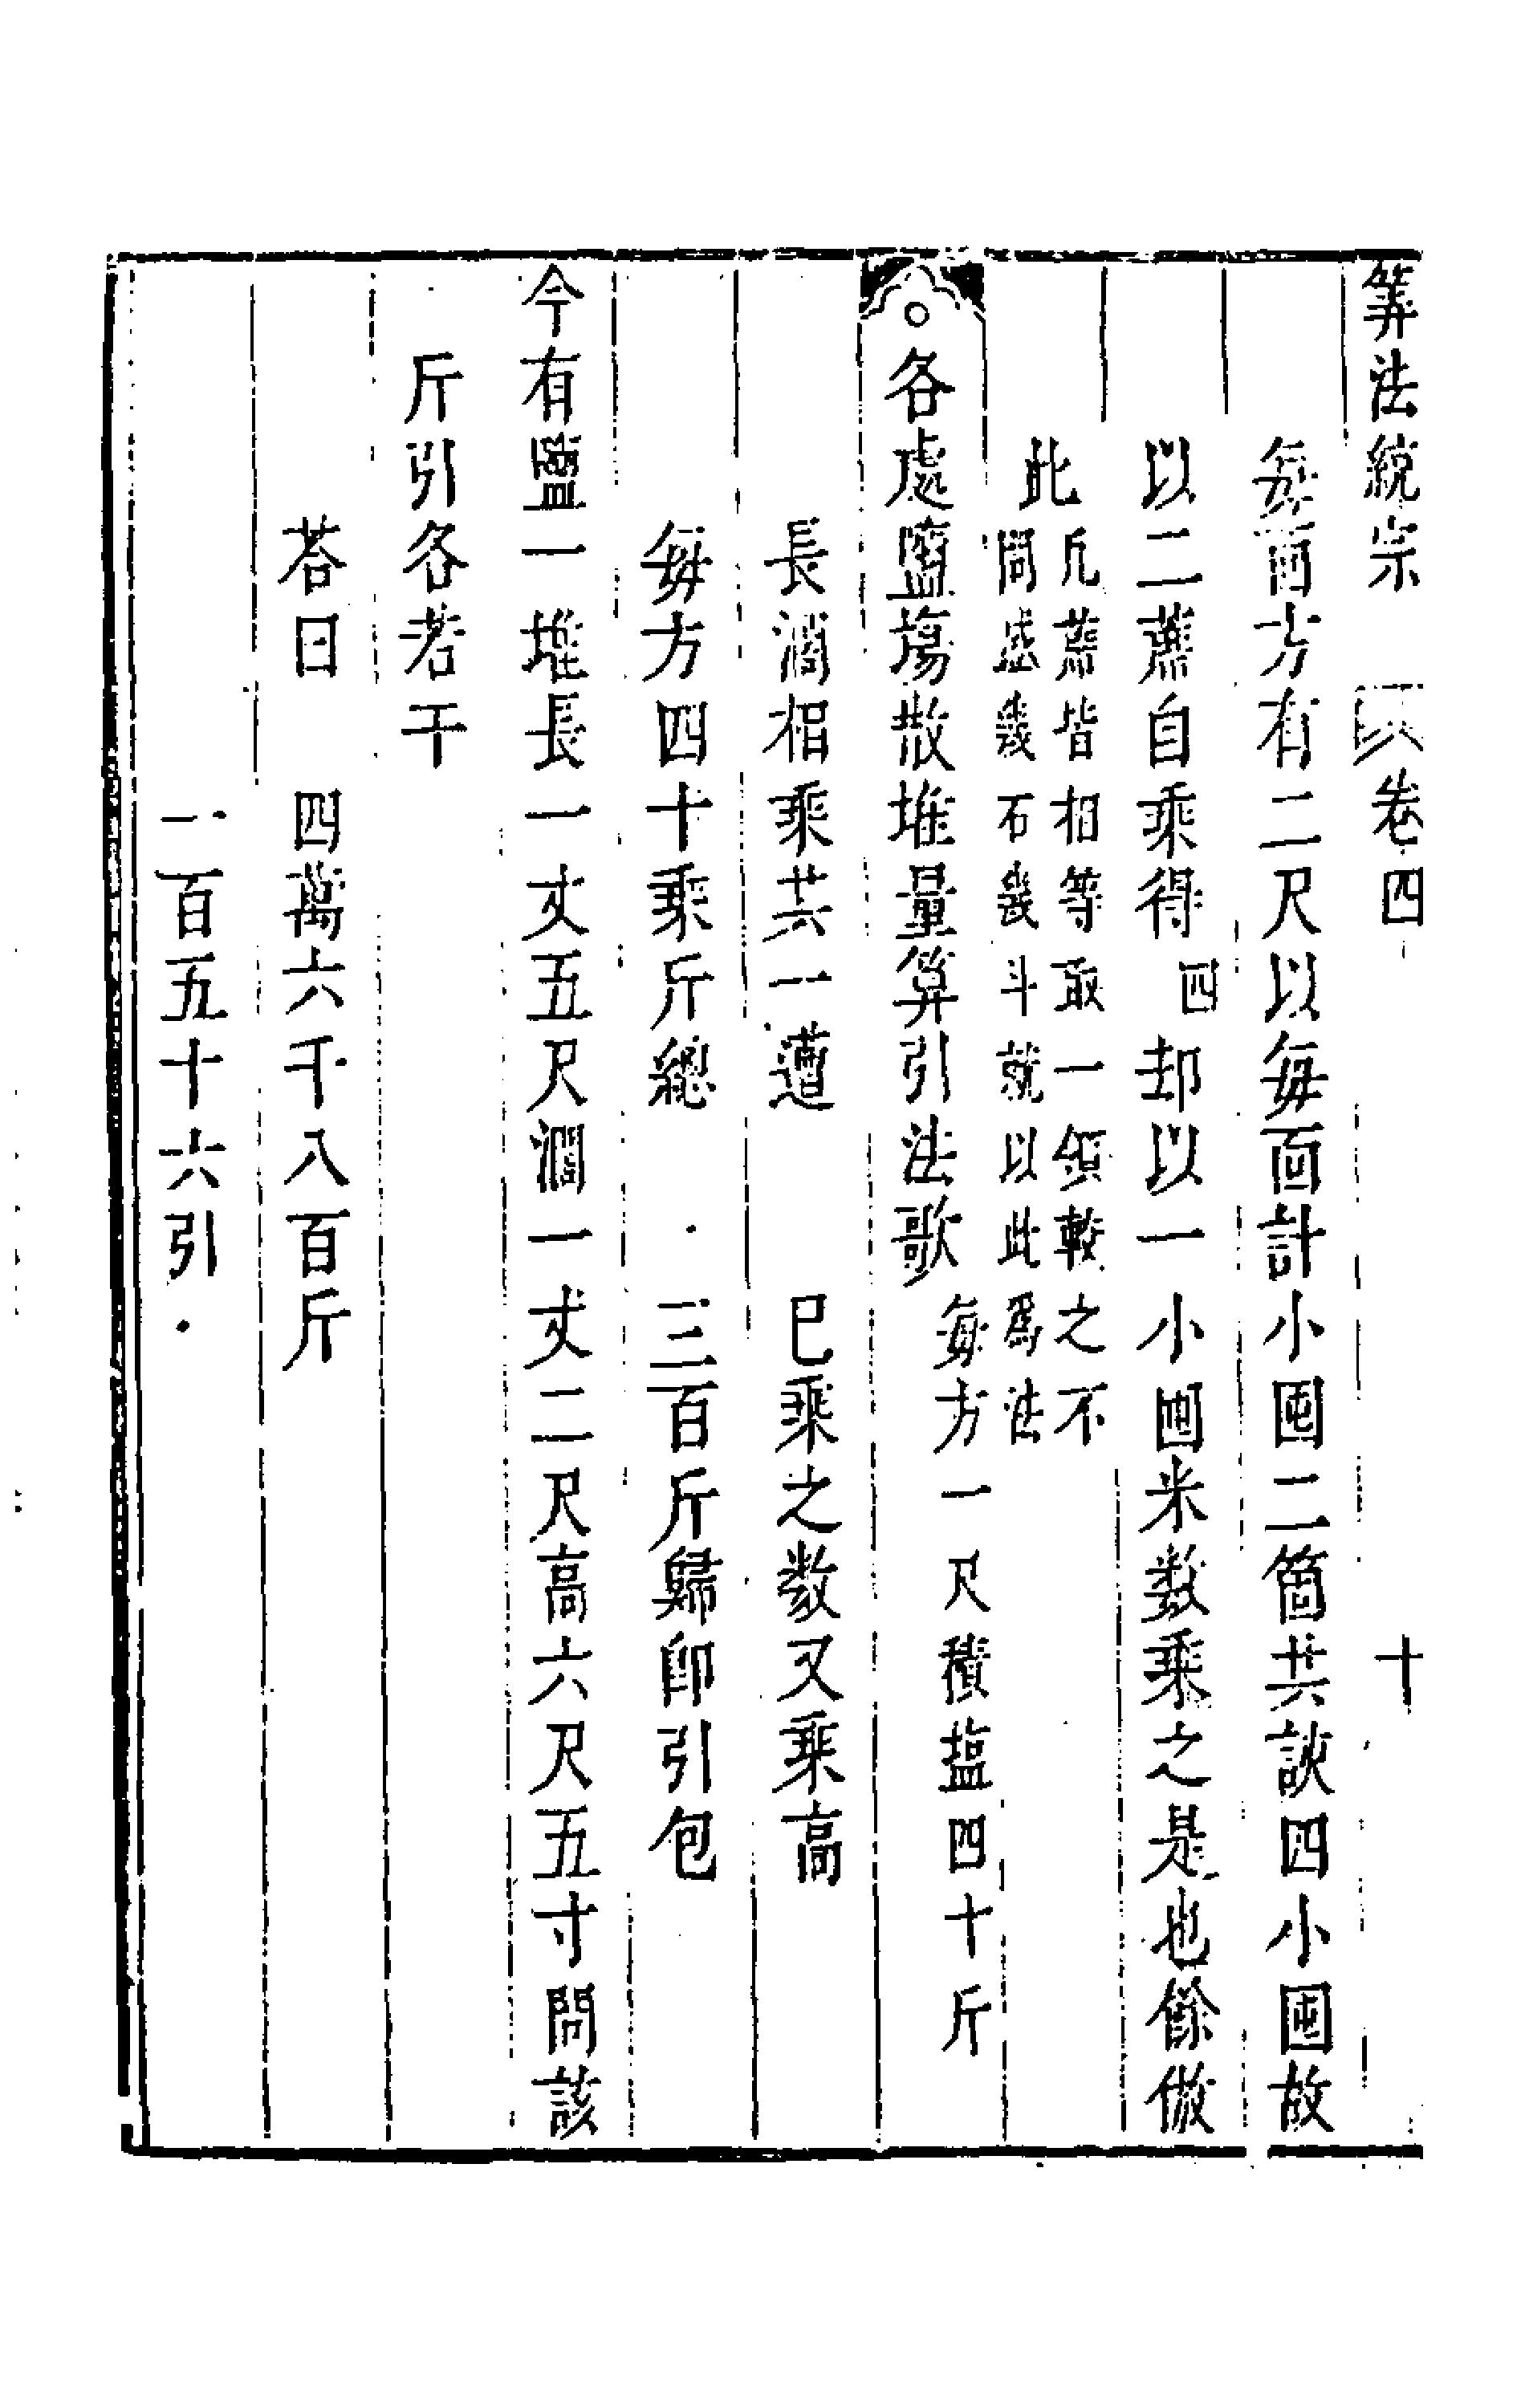 筭法統宗 卷四 十
每面方有二尺以每面計小囤二箇共該四小囤故
以二蓆自乘得四却以一小囤米数乘之是也餘倣
此凡蓆皆相等取一領較之不
問盛幾石幾斗就以此爲法
各處鹽塲散堆量算引法歌 每方一尺積塩四十斤
長濶相乘共一遭 已乘之数又乘高
每方四十乘斤總 三百斤歸即引包
今有鹽一堆長一丈五尺濶一丈二尺高六尺五寸問該
斤引各若干
荅曰 四萬六千八百斤
一百五十六引